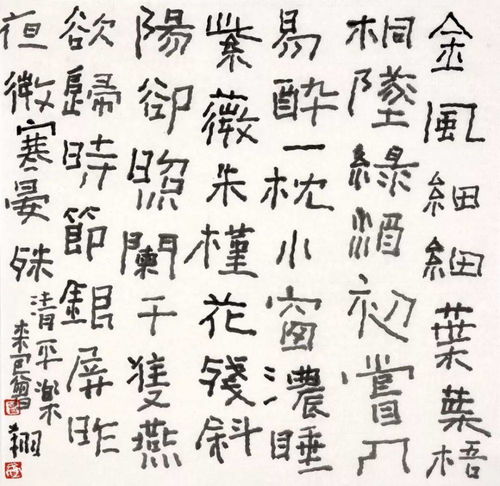 金風細細葉葉梧
桐墜綠酒初嘗人
易醉一枕小窗濃睡
紫薇朱槿花殘斜
陽卻照闌干雙燕
欲歸時節銀屏昨
夜微寒晏殊
清平樂
翔